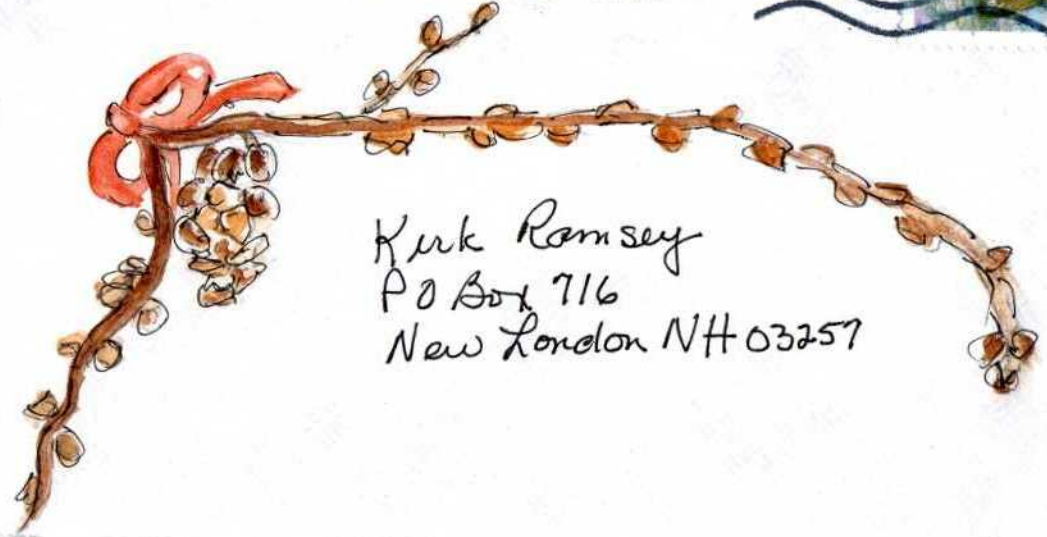 Kirk Ramsey
PO Box 716
New London NH 03257